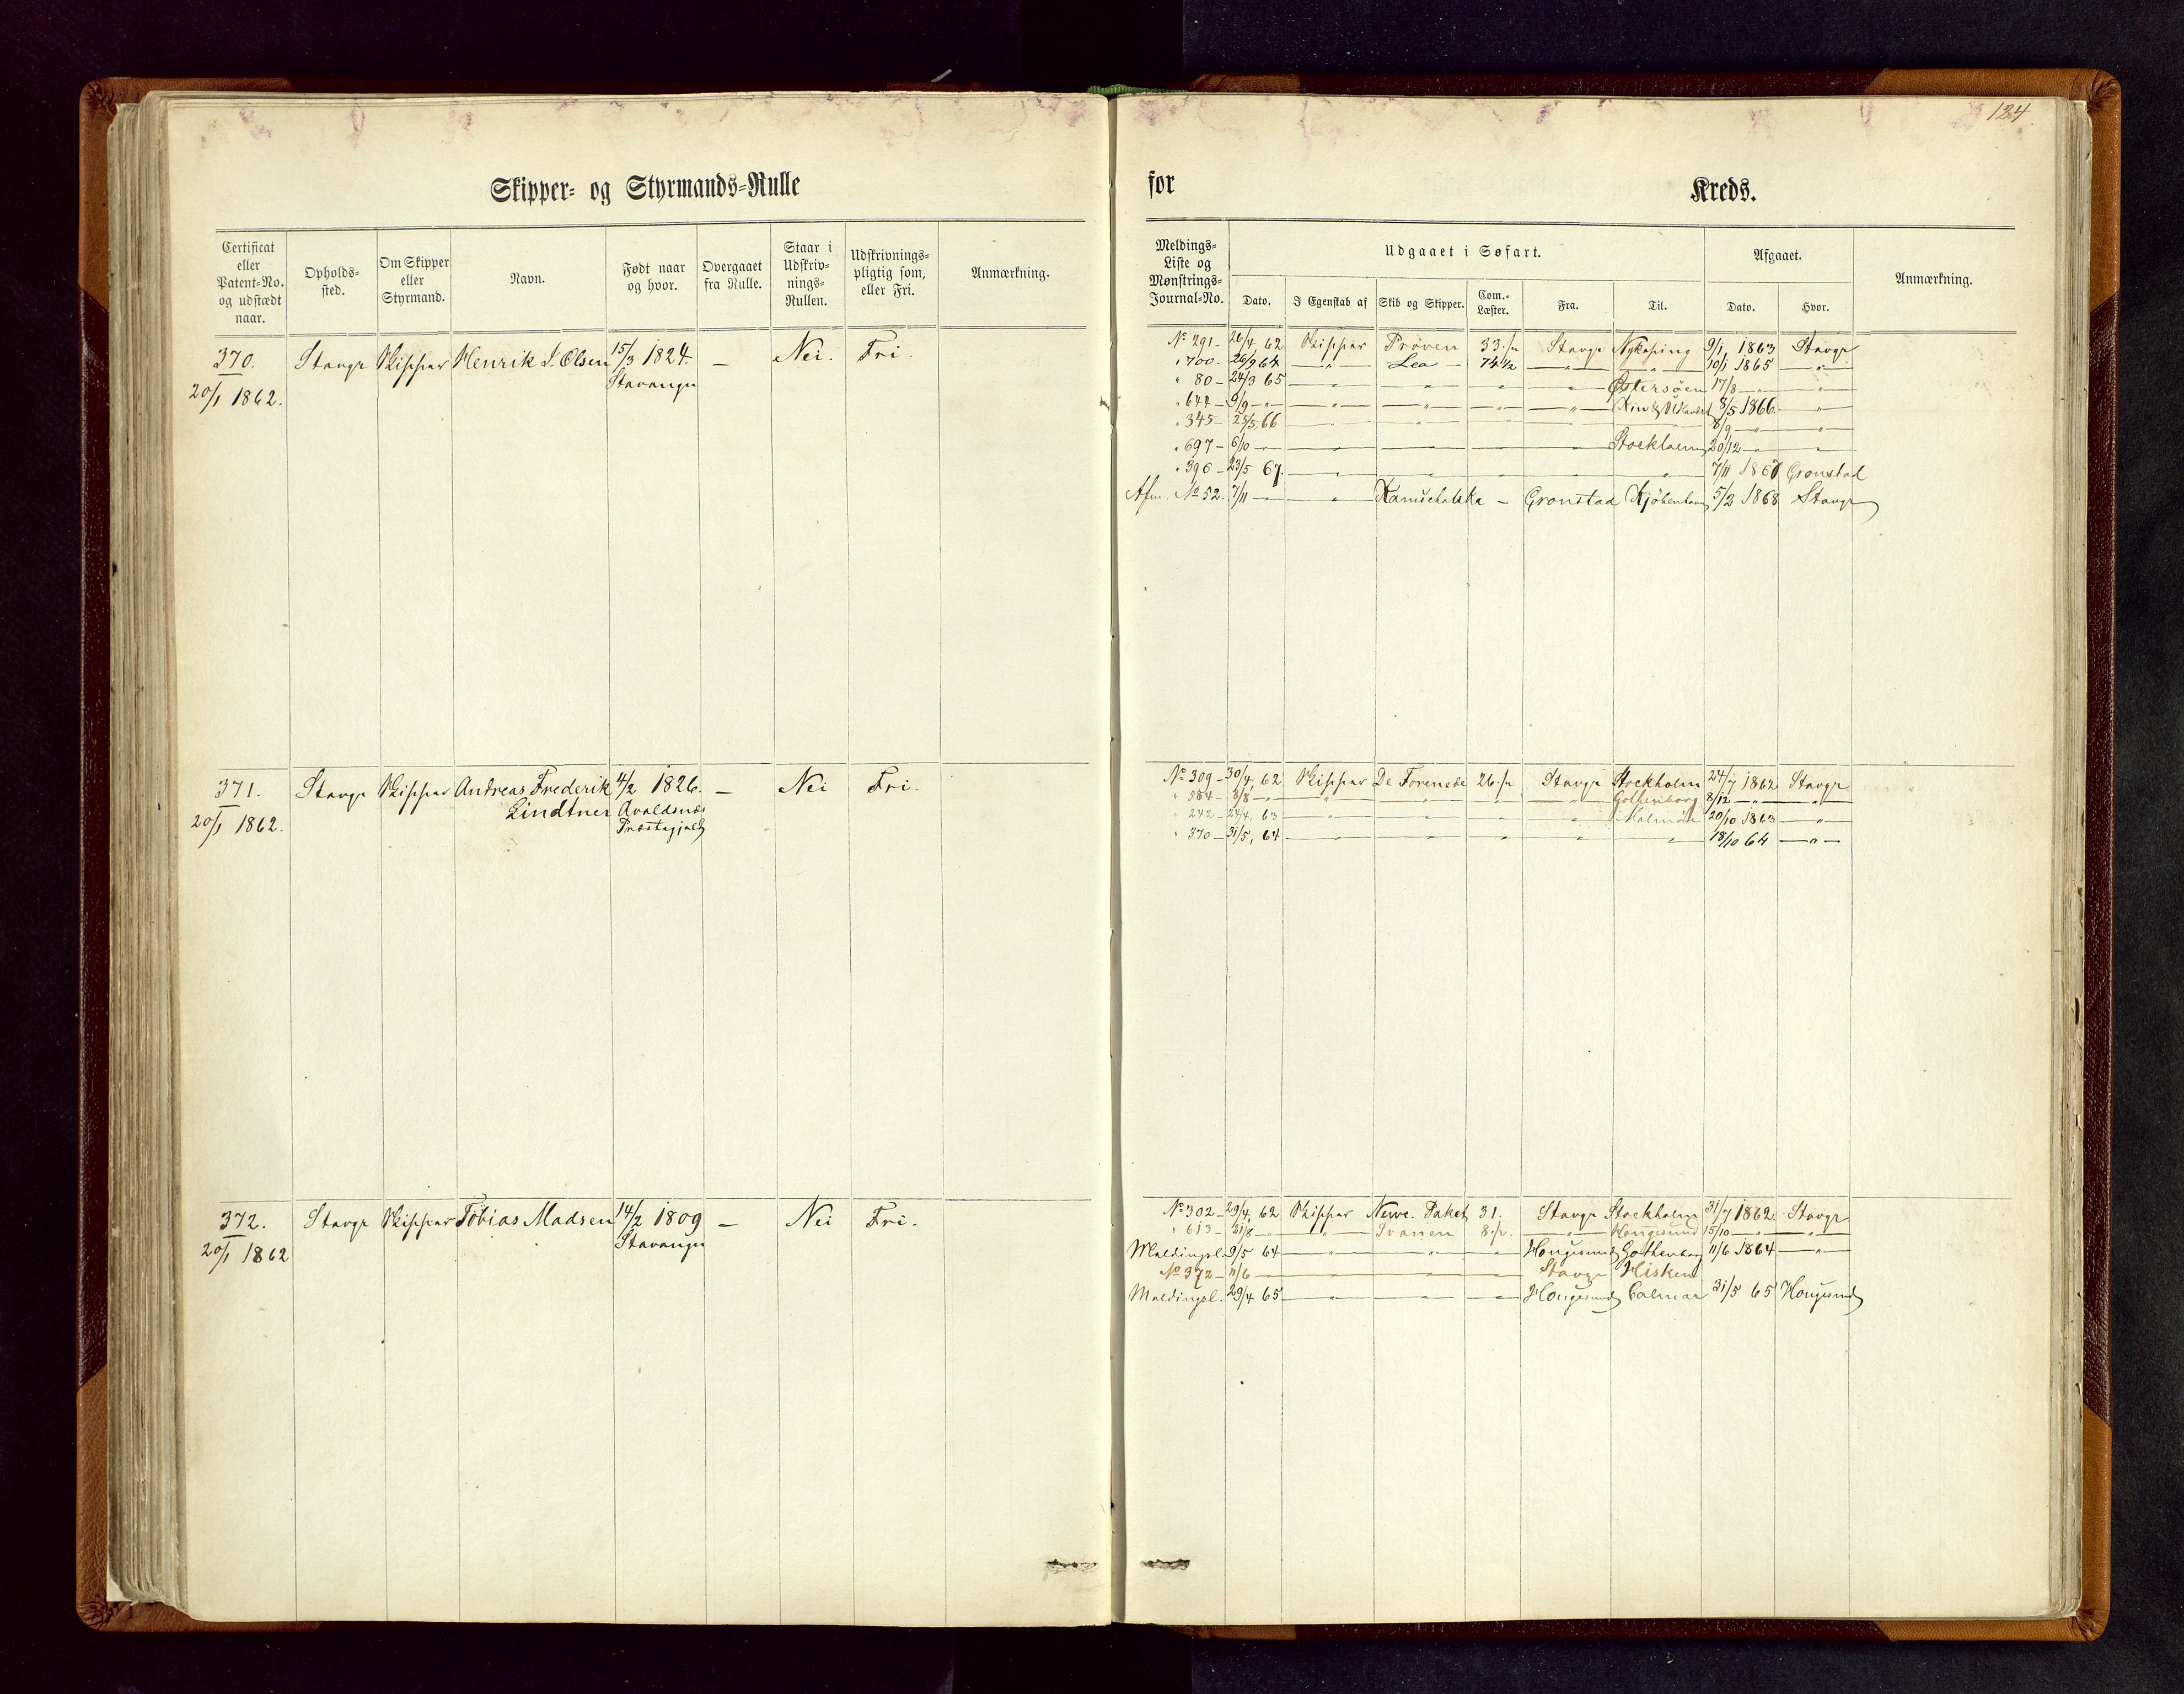 124
Skipper- og Styrmands-Rulle
for Kreds.
Certificat eller Patent-No. og udstædt naar.
Opholds-sted.
Om Skipper eller Styrmand.
Navn.
Født naar og hvor.
Overgaaet fra Rulle.
Staar i Udskriv-nings-Rullen.
Udskrivnings-pligtig som, eller Fri.
Anmærkning.
Meldings-Liste og Mønstrings-Journal-No.
Udgaaet i Søfart.
Dato.
I Egenskab af
Skib og Skipper.
Com.-Læster.
Fra.
Til.
Afgaaet.
Dato.
Hvor.
Anmærkning.
370. Stavgr Skipper Henrik J. Olsen 15/3 1824. — Nei. Fri.
20/1 1862. Stavanger
No 291 - 26/4 62 Skipper Prøven 33 Stavgr Nykøping 9/1 1863 Stavgr
" 700 - 26/9 64 — " — Lea — 74½ — " — — " — 10/1 1865 — " —
" 80 - 24/3 65 — " — " — " — " — Østersøen 17/8 — " — " —
" 644 - 9/9 — " — " — " — " — " — 8/5 1866 — " —
" 345 - 25/5 66 — " — " — 8/9 — " — " —
" 697 - 6/10 — Stockholm 20/12 — " — " —
" 396 - 23/5 67. — " — " — " — " — " — 7/11 1867 Cronstad
Afm. No 52. 7/11 — " — Kamschatska — Cronstad Kjøbenhavn 5/2 1868 Stavgr
371. Stavgr Skipper Andreas Frederik 4/2 1826. — Nei Fri.
20/1 1862. Lindtner Avaldsnæs
Præstegjeld
No 309 - 30/4, 62 Skipper De Forenede 26 Stavgr Stockholm 24/7 1862 Stavgr
" 584 - 8/8 — " — " — " — " — " — Gothenborg 8/12 — " — " —
" 242 - 24/4, 63 — " — " — " — " — Malmöe 20/10 1863 — " —
" 370 - 31/5, 64 — " — " — " — " — " — 18/10 64 — " —
372. Stavgr Skipper Tobias Madsen 14/2 1809 — Nei Fri.
20/1 1862 Stavanger
No 302 - 29/4, 62 Skipper Nerve. Paket 31. Stavgr Stockholm 31/7 1862 Stavgr
" 613 - 21/8 — " — " — Svanen 8 — " — Hougesund 15/10 — " — " —
Meldingsl. 9/5 64 — " — " — " — Hougesund Gothenborg 11/6 1864 — " —
No 372 - 11/6 — " — " — " — Stavgr Hisken
Meldingsl. 29/4 65 — " — " — " — Hougesund Calmar 31/5 65 Hougesund